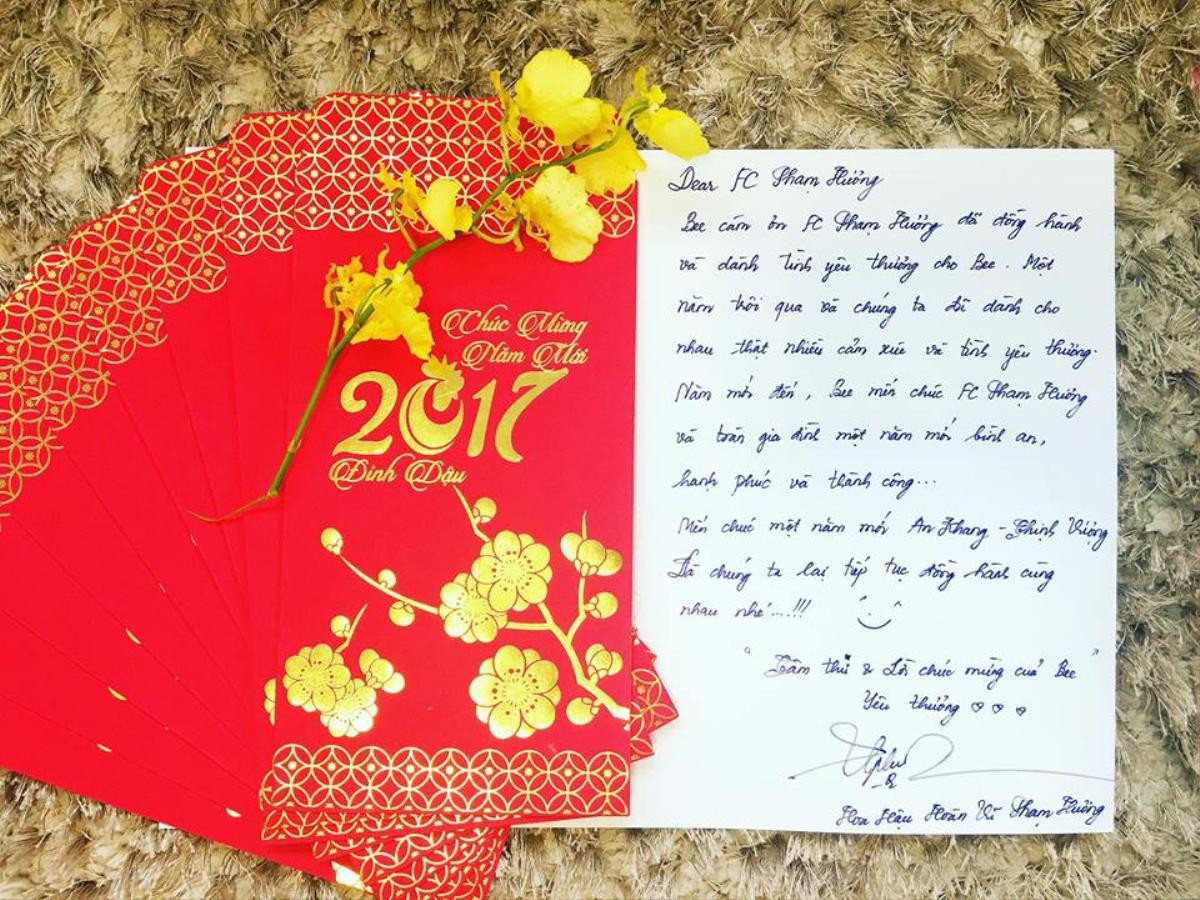 Chúc Mừng
Năm Mới
2017
Đinh Dậu
Dear FC Phạm Hương
Bee cám ơn FC Phạm Hương đã đồng hành
và dành tình yêu thương cho Bee. Một
năm trôi qua và chúng ta đã dành cho
nhau thật nhiều cảm xúc và tình yêu thương.
Năm mới đến, Bee mến chúc FC Phạm Hương
và toàn gia đình một năm mới bình an,
hạnh phúc và thành công...
Mến chúc một năm mới An Khang - Thịnh Vượng
Và chúng ta lại tiếp tục đồng hành cùng
nhau nhé....!!!
" Tâm thư & Lời chúc mừng của Bee "
Yêu thương
Hoa Hậu Hoàn Vũ Phạm Hương